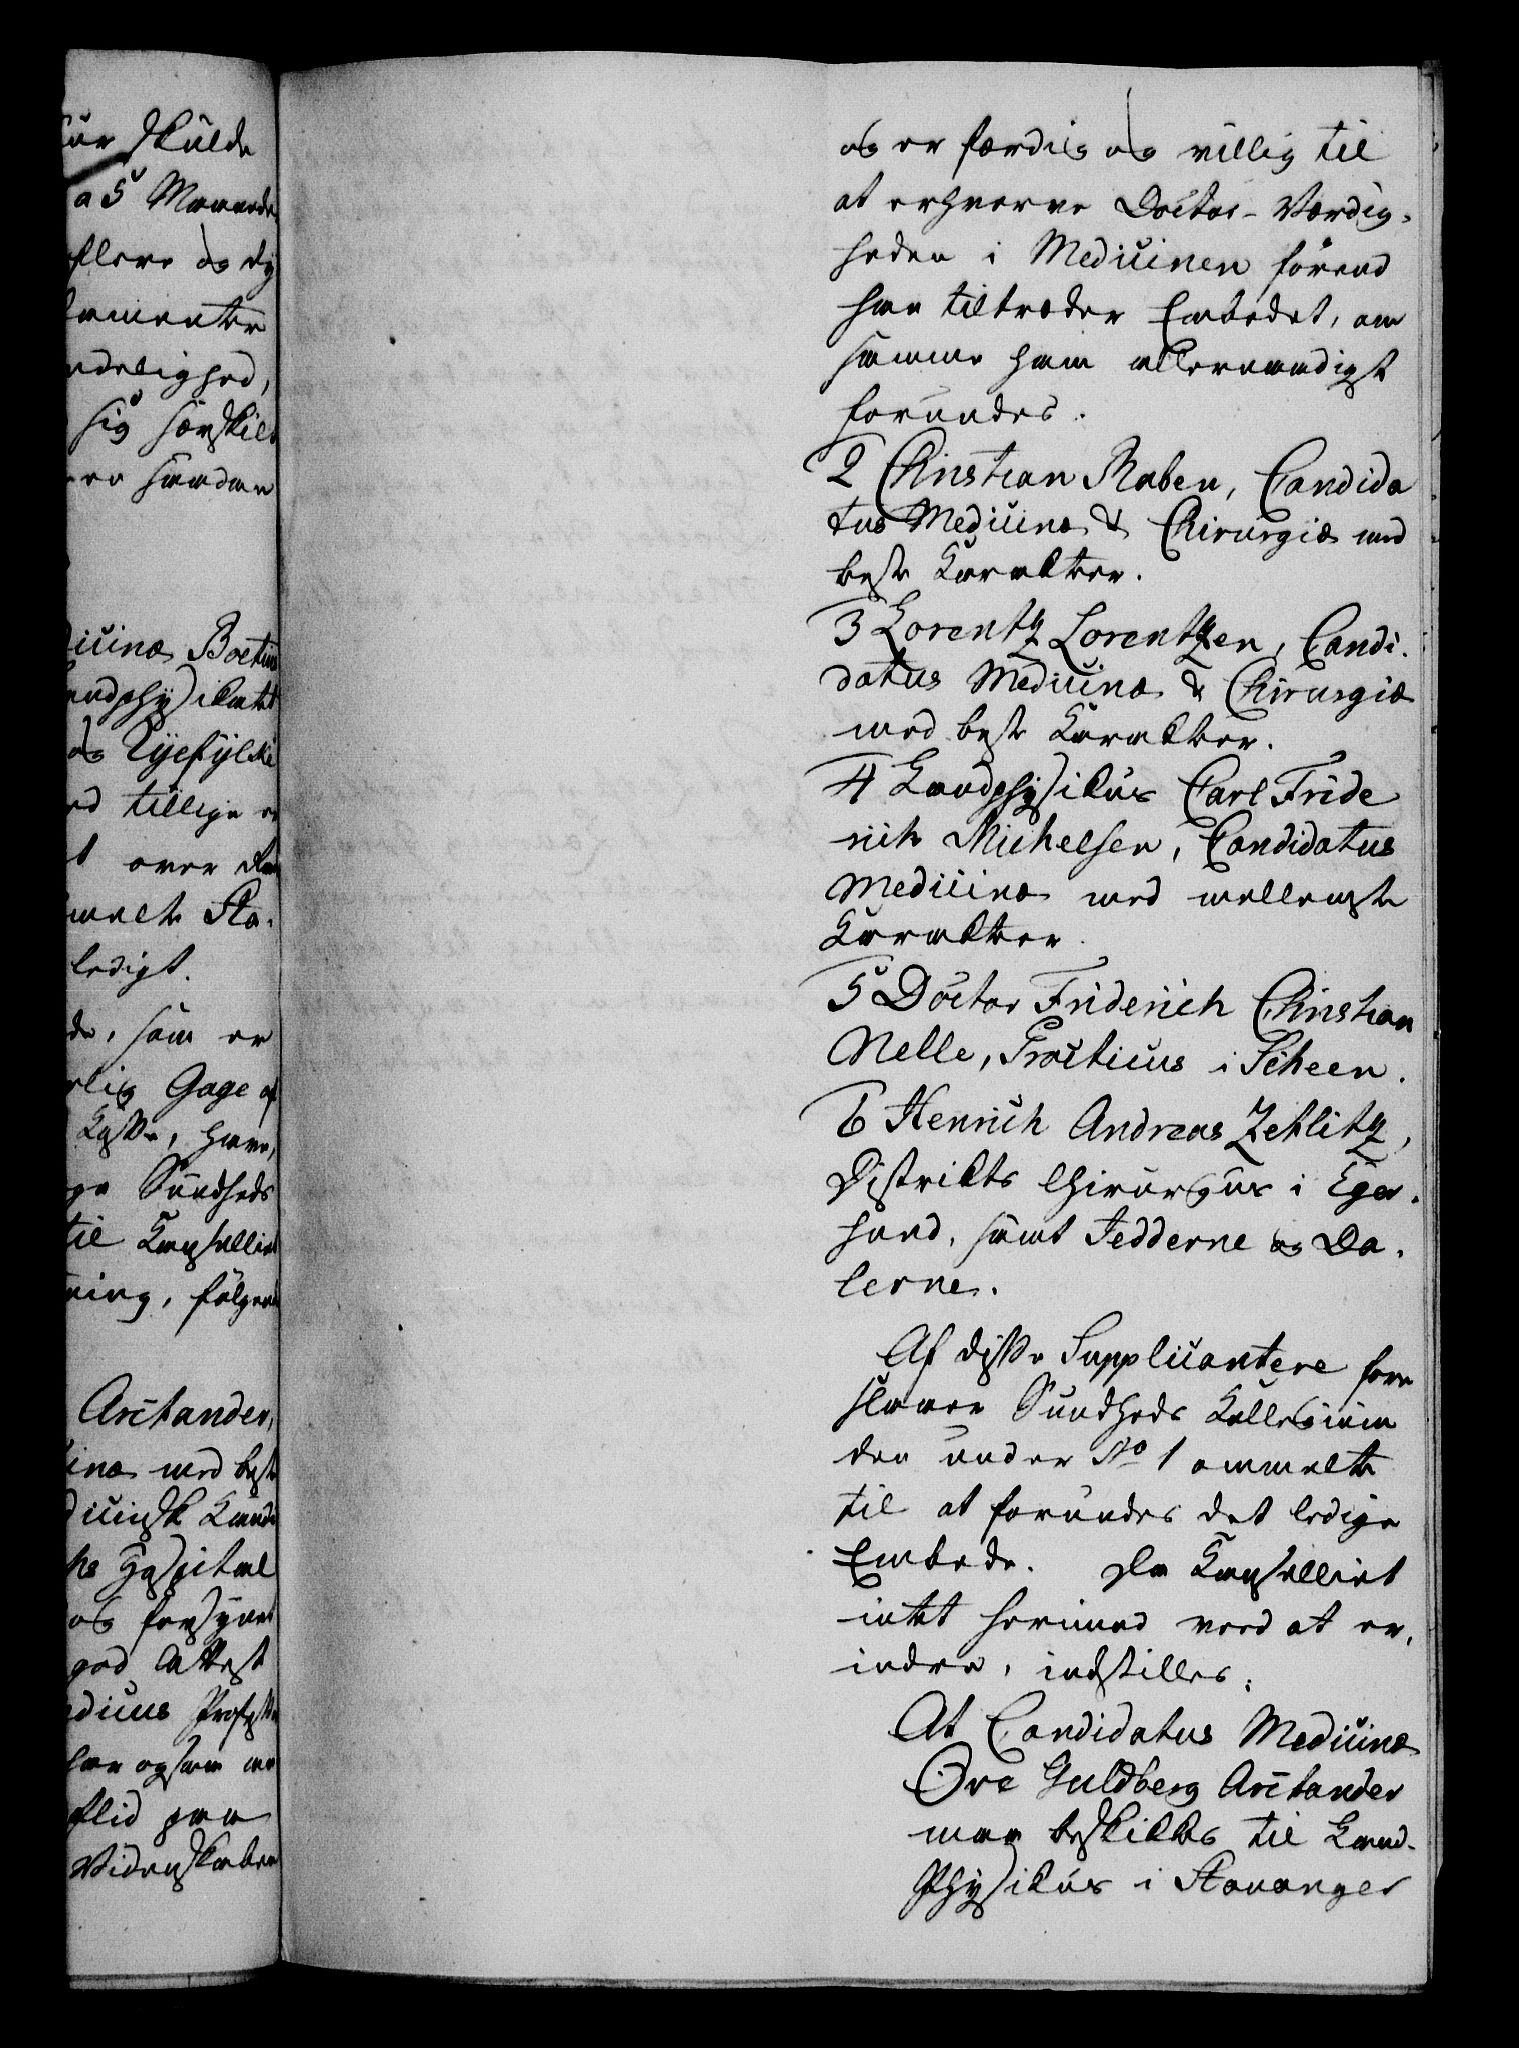 ʒør skulde
a 5 Maaneder
flere og dy
damenter
ndelighed,
sig særskilt
en saadan
dicinæ Boetius
andphysikatet
og Ryefylke
ed tillige e
t over den
melte Sta-
ledigt.
de, som er
rlig Gage af
Kasse, have,
ge Sundheds
til Kanselliet
ning, følgend
Arctander,
inæ med beste
dicinsk Candi
hs Hospital
og forsynet
god Attest
dicus Professo
har ogsaa me
flid paa
Videnskaben
og er færdig og villig til
at erhverve Doctor-Værdig-
heden i Medicinen förend
han tiltræder Embedet, om
samme ham allernaadigst
forundes.
2 Christian Raben, Candida
tus Medicinæ & Chirurgiæ med
beste Karakter.
3 Lorentz Lorentzen, Candi-
datus Medicinæ & Chirurgiæ
med beste Karakter.
4 Landphysikus Carl Fride
rich Michelsen, Candidatus
Medicinæ med mellemste
Karakter.
5 Doctor Friderich Christian
Melle, Practicus i Scheen.
6 Henrich Andreas Zetlitz,
Distrikts Chirurgus i Eger-
sund, samt Jedderne og Da-
lerne.
Af disse Supplicantere fore
slaaer Sundheds Kollegium
den under No 1 ommelte
til at forundes det ledige
Embede. Da Kanselliet
intet herimod veed at er-
indre, indstilles:
At Candidatus Medicinæ
Ove Guldberg Arctander
maa beskikkes til Land-
Physikus i Stavanger